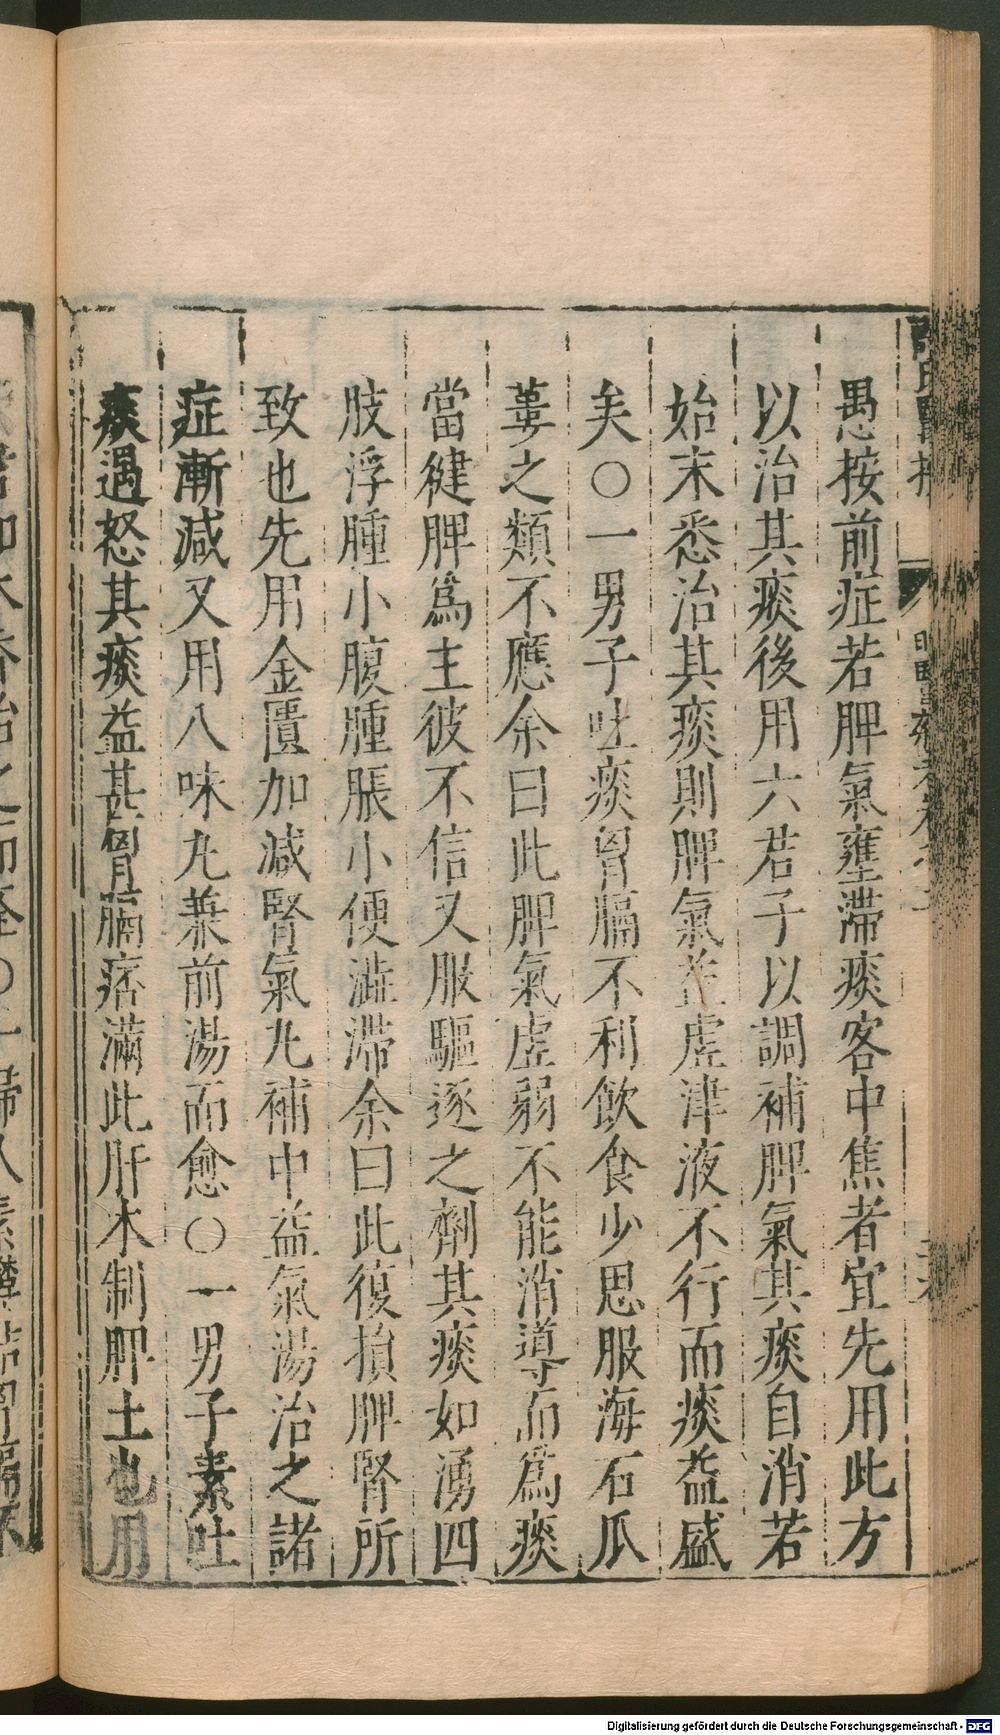 愚桉前症若脾氣壅滯痰客中焦者宜先用此方
以治其痰後用六君子以調補脾氣其痰自消若
始末悉治其痰則脾氣益虛津液不行而痰益盛
矣○一男子吐痰胷膈不利飲食少思服海石瓜
蔞之類不應余曰此脾氣虛弱不能消導而爲痰
當健脾爲主彼不信又服驅逐之劑其痰如湧四
肢浮腫小腹腫脹小便澁滯余曰此復損脾腎所
致也先用金匱加减腎氣丸補中益氣湯治之諸
症漸减又用八味丸兼前湯而愈○一男子素吐
痰遇怒其痰益甚胷膈痞滿此肝木制脾土也用
Digitalisierung gefördert durch die Deutsche Forschungsgemeinschaft - DFG